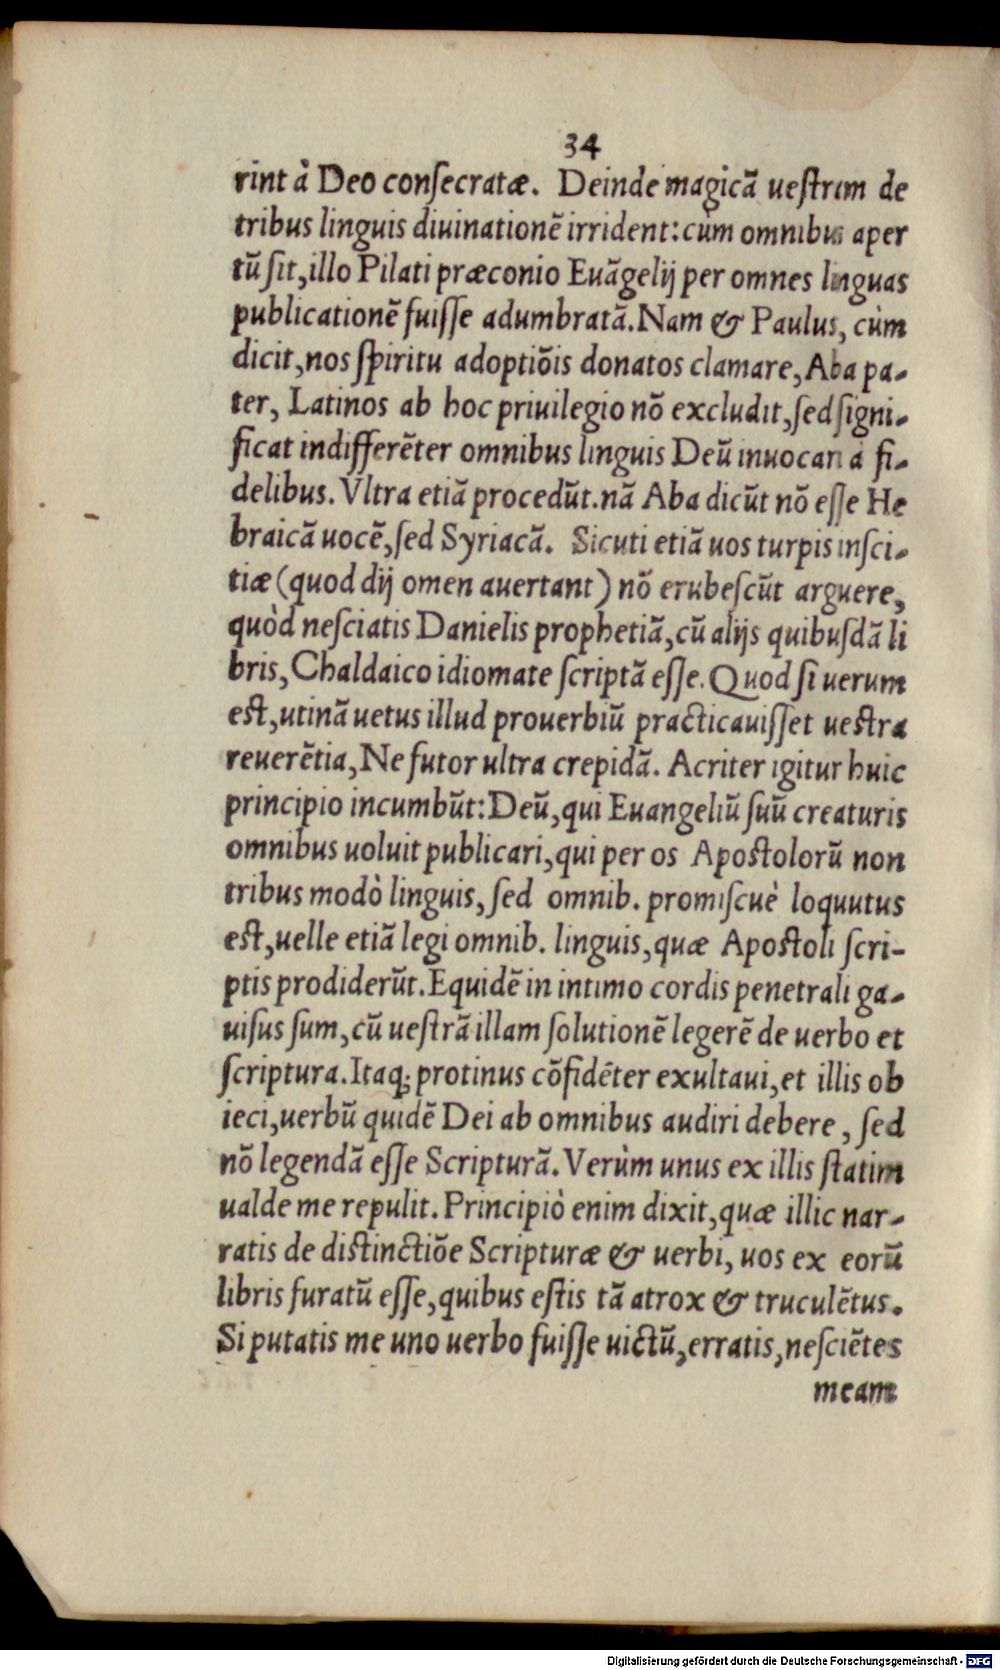 34
rint à Deo conſecratæ. Deinde magicã ueſtram de
tribus linguis diuinationẽ irrident: cùm omnibus aper
tũ ſit, illo Pilati præconio Euãgelij per omnes linguas
publicationẽ fuiſſe adumbratã. Nam & Paulus, cùm
dicit, nos ſpiritu adoptiõis donatos clamare, Aba pa-
ter, Latinos ab hoc priuilegio nõ excludit, ſed ſigni-
ficat indifferẽter omnibus linguis Deũ inuocari à fi-
delibus. Vltra etiã procedũt. nã Aba dicũt nõ eſſe He
braicã uocẽ, ſed Syriacã. Sicuti etiã uos turpis inſci-
tiæ (quod dij omen auertant) nõ erubeſcũt arguere,
quòd neſciatis Danielis prophetiã, cũ alijs quibuſdã li
bris, Chaldaico idiomate ſcriptã eſſe. Quod ſi uerum
eſt, utinã uetus illud prouerbiũ practicauiſſet ueſtra
reuerẽtia, Ne ſutor ultra crepidã. Acriter igitur huic
principio incumbũt: Deũ, qui Euangeliũ ſuũ creaturis
omnibus uoluit publicari, qui per os Apoſtolorũ non
tribus modò linguis, ſed omnib. promiſcuè loquutus
eſt, uelle etiã legi omnib. linguis, quæ Apoſtoli ſcri-
ptis prodiderũt. Equidẽ in intimo cordis penetrali ga-
uiſus ſum, cũ ueſtrã illam ſolutionẽ legerẽ de uerbo et
ſcriptura. Itaq; protinus cõfidẽter exultaui, et illis ob
ieci, uerbũ quidẽ Dei ab omnibus audiri debere, ſed
nõ legendã eſſe Scripturã. Verùm unus ex illis ſtatim
ualde me repulit. Principiò enim dixit, quæ illic nar-
ratis de diſtinctiõe Scripturæ & uerbi, uos ex eorũ
libris furatũ eſſe, quibus eſtis tã atrox & truculẽtus.
Si putatis me uno uerbo fuiſſe uictũ, erratis, neſciẽtes
meam
Digitalisierung gefördert durch die Deutsche Forschungsgemeinschaft - DFG